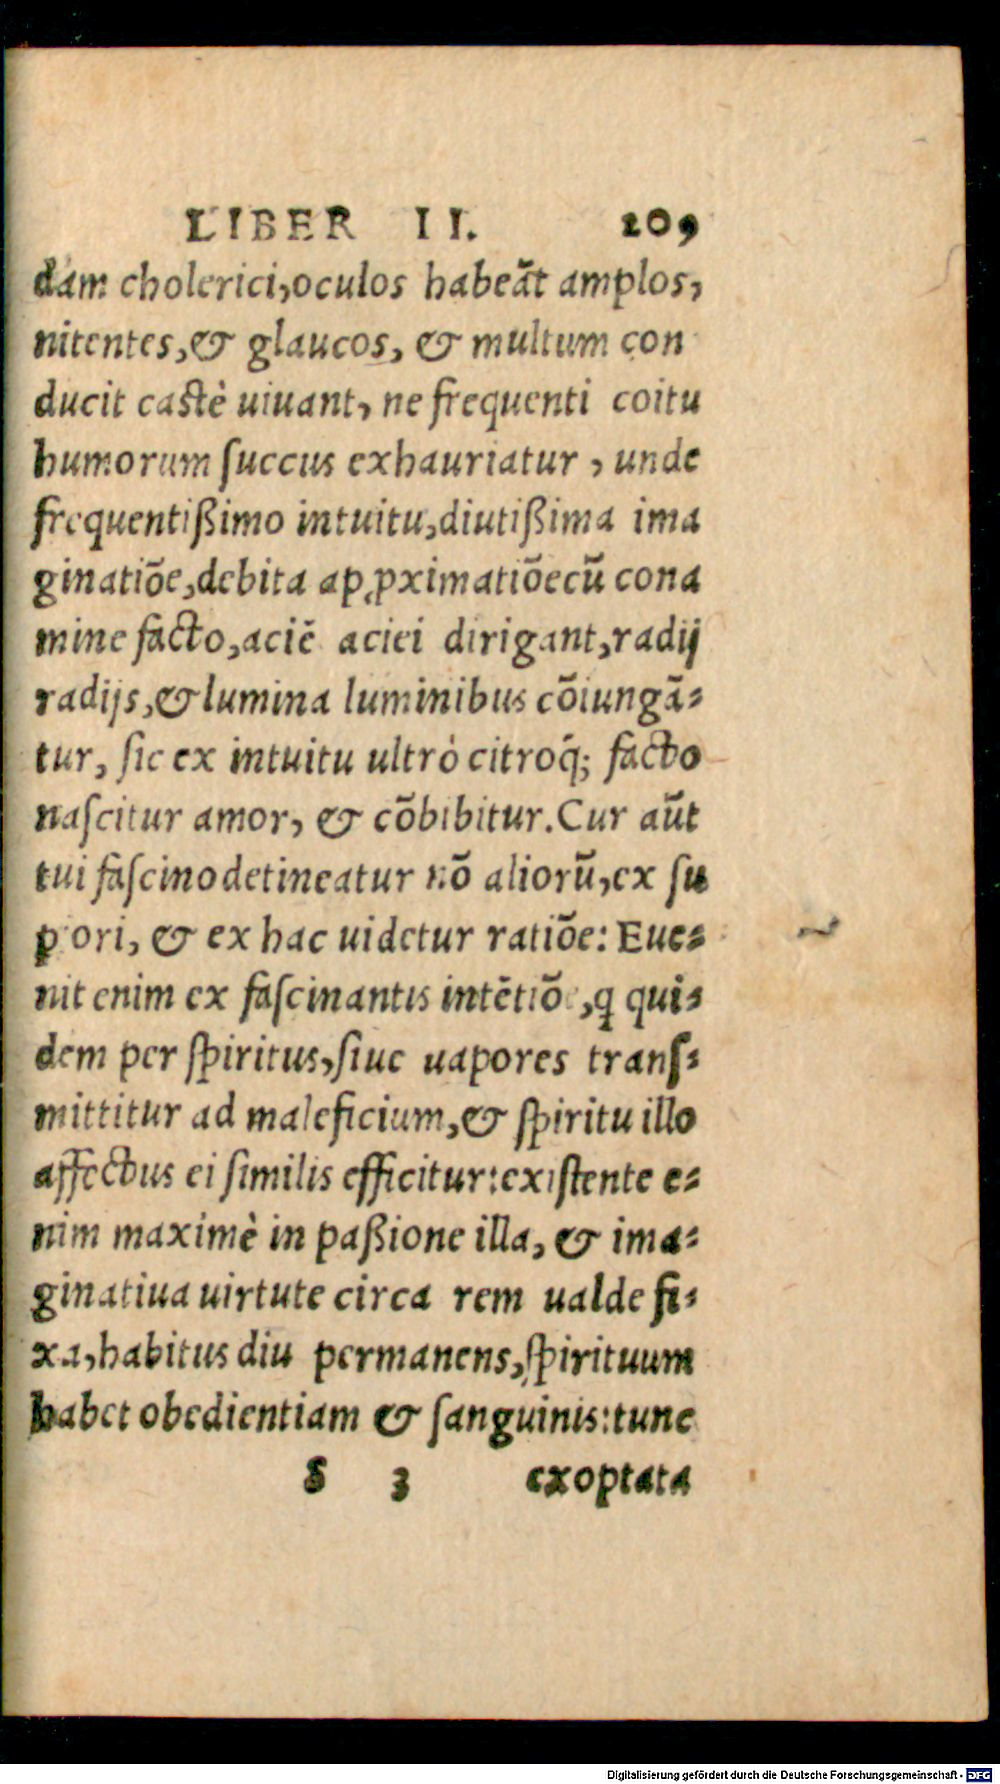 LIBER II. 109
dam cholerici, oculos habeāt amplos,
nitentes, & glaucos, & multum con
ducit castè uiuant, ne frequenti coitu
humorum ſuccus exhauriatur, unde
frequentißimo intuitu, diutißima ima
ginatiōe, debita apꝓximatiōe cū cona
mine facto, aciē aciei dirigant, radij
radijs, & lumina luminibus cōiungā⸗
tur, ſic ex intuitu ultrò citroq́; facto
naſcitur amor, & cōbibitur. Cur aūt
tui faſcino detineatur nō aliorū, ex ſu
pori, & ex hac uidetur ratiōe: Eue⸗
nit enim ex faſcinantis intētiōe, q̃ qui⸗
dem per ſpiritus, ſiue uapores tranſ⸗
mittitur ad maleficium, & ſpiritu illo
affectus ei ſimilis efficitur: exiſtente e⸗
nim maximè in paßione illa, & ima⸗
ginatiua uirtute circa rem ualde fi⸗
xa, habitus diu permanens, ſpirituum
habet obedientiam & ſanguinis: tunc
S 3 exoptata
Digitalisierung gefördert durch die Deutsche Forschungsgemeinschaft - DFG